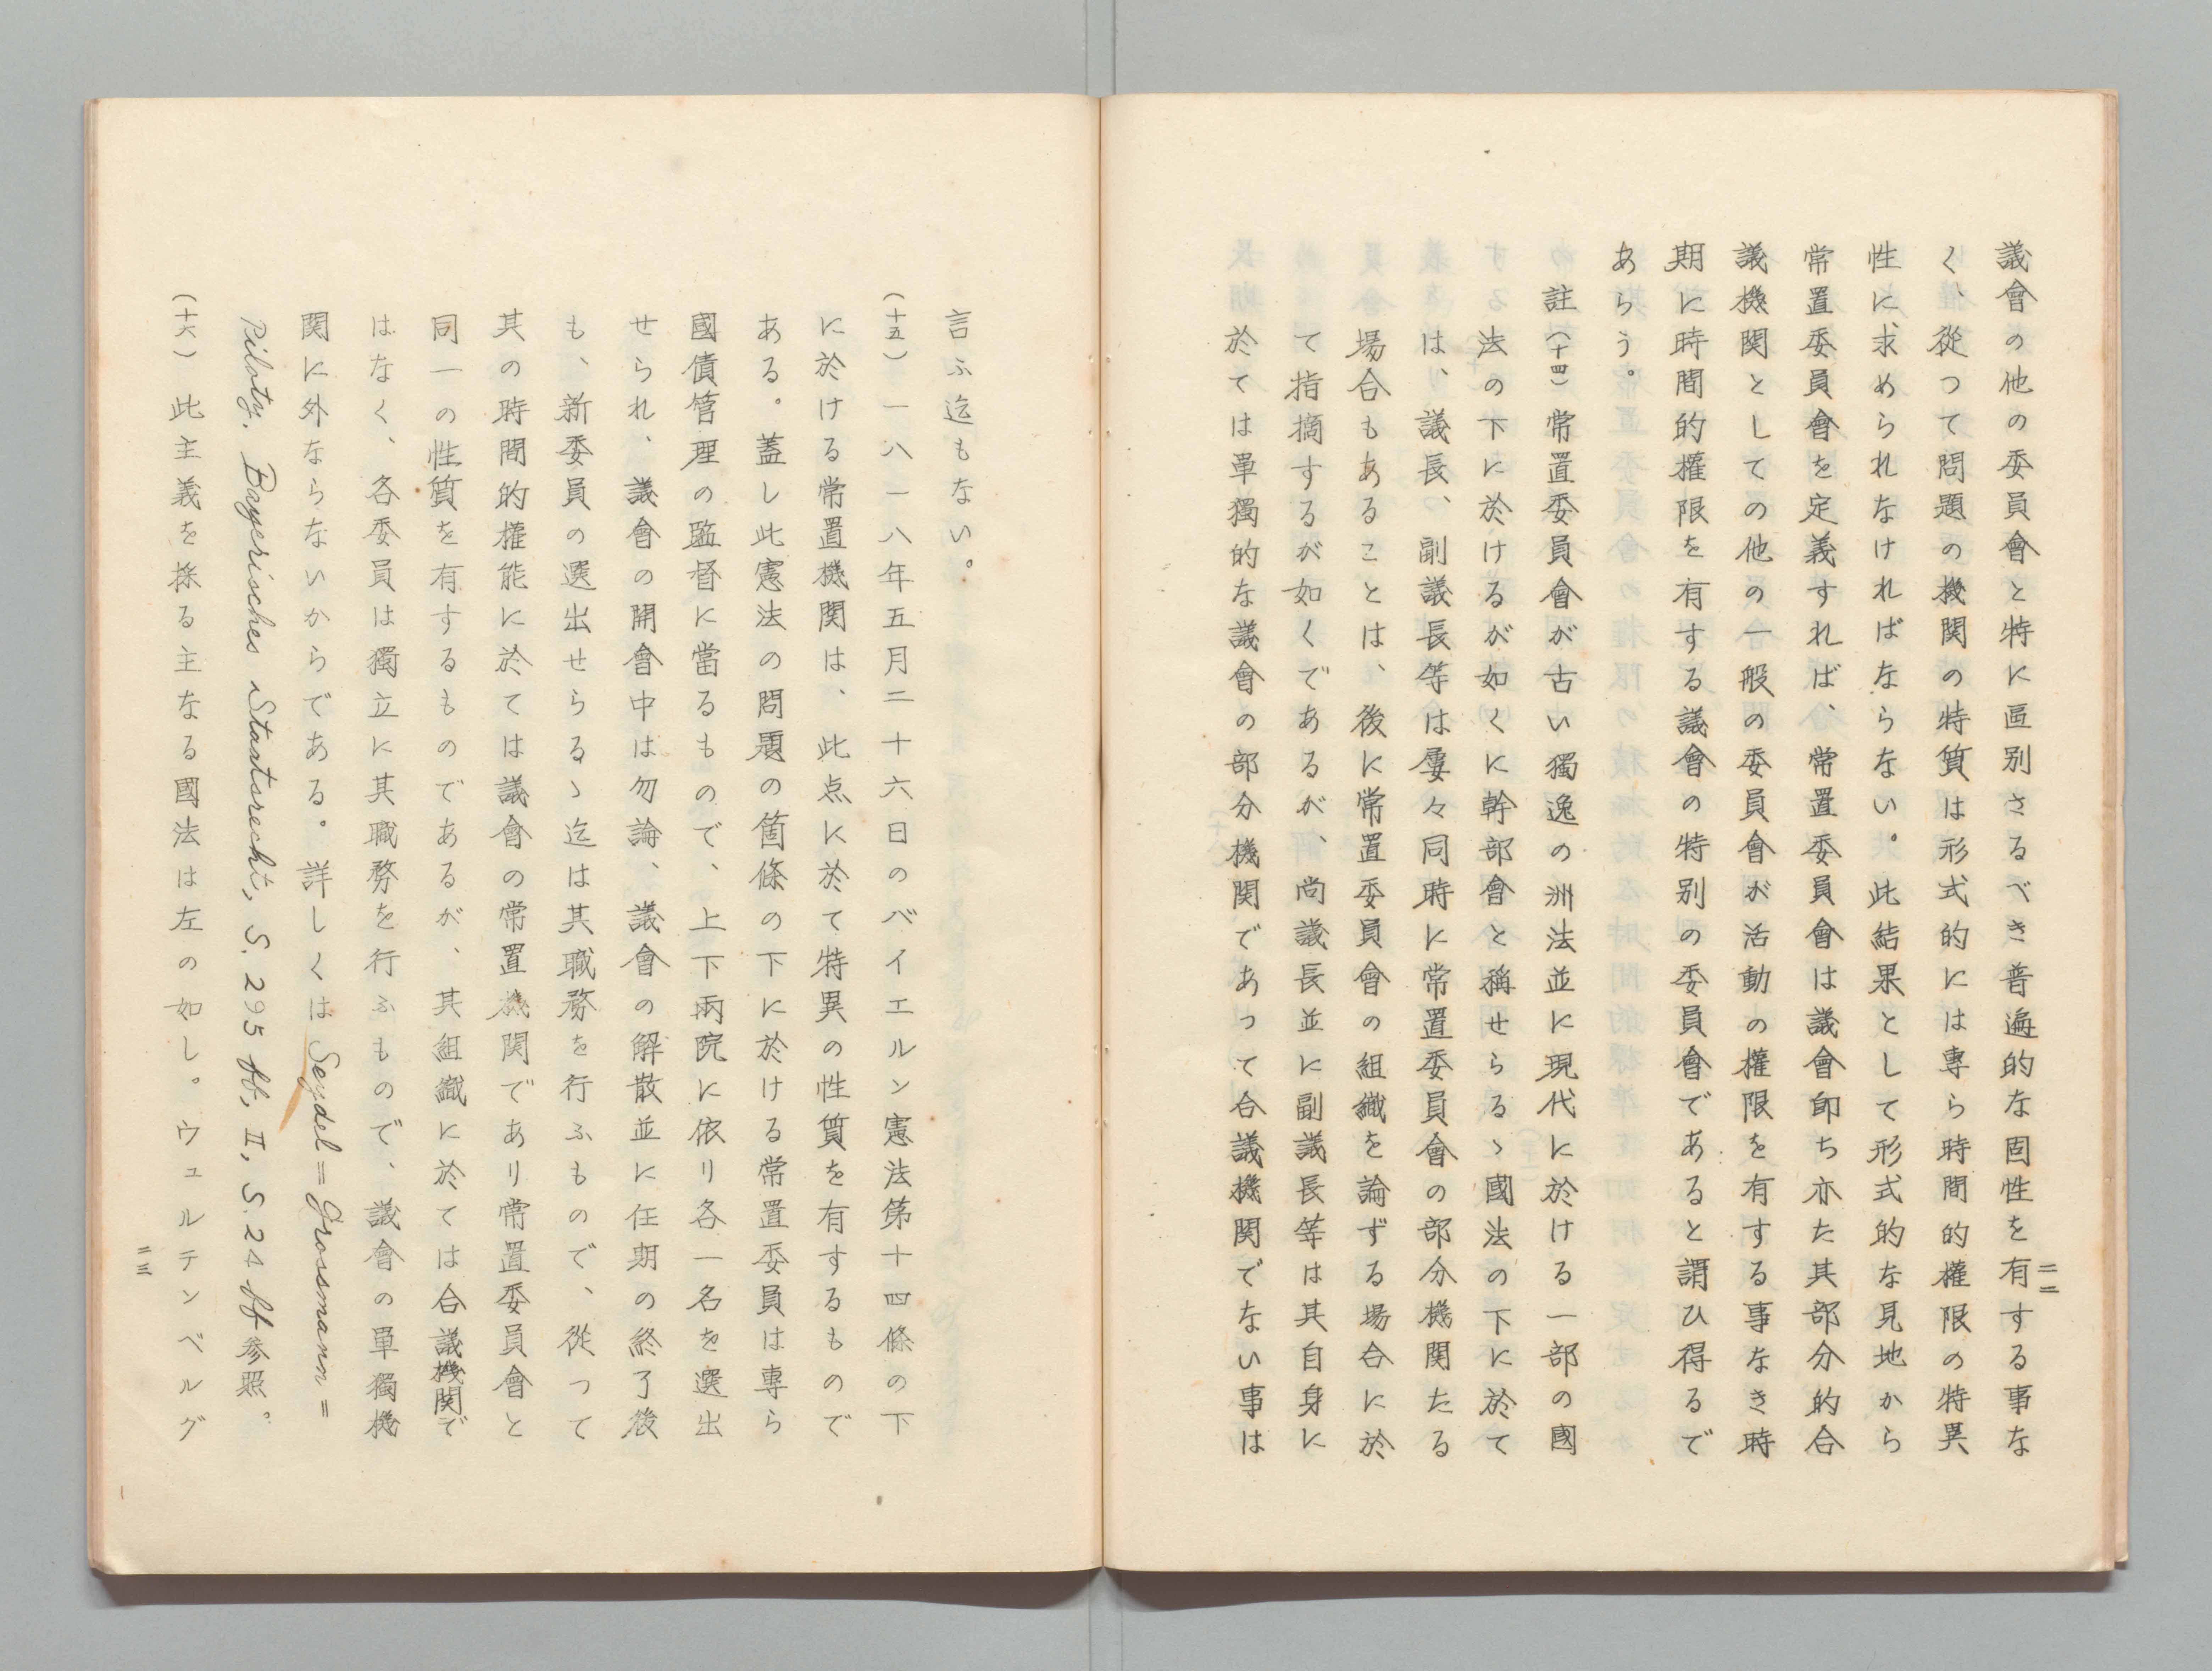 議會の他の委員會と特に区別さるべき普遍的な固性を有する事な
く、從つて問題の機関の特質は形式的には專ら時間的權限の特異
性に求められなければならない。此結果として形式的な見地から
常置委員會を定義すれば、常置委員會は議會卽ち亦た其部分的合
議機関としての他の一般の委員會が活動の權限を有する事なき時
期に時間的權限を有する議會の特別の委員會であると謂ひ得るで
あらう。
註(十四)常置委員會が古い獨逸の洲法並に現代に於ける一部の國
法の下に於けるが如くに幹部會と稱せらるゝ國法の下に於て
は、議長、副議長等は屢々同時に常置委員會の部分機関たる
場合もあることは、後に常置委員會の組織を論ずる場合に於
て指摘するが如くであるが、尚議長並に副議長等は其自身に
於ては單獨的な議會の部分機関であつて合議機関でない事は
二二
言ふ迄もない。
(十五)一八一八年五月二十六日のバイエルン憲法第十四條の下
に於ける常置機関は、此点に於て特異の性質を有するもので
ある。蓋し此憲法の問題の箇條の下に於ける常置委員は專ら
國債管理の監督に當るもので、上下兩院に依り各一名を選出
せられ、議會の開會中は勿論、議會の解散並に任期の終了後
も、新委員の選出せらるゝ迄は其職務を行ふもので、從つて
其の時間的權能に於ては議會の常置機関であり常置委員會と
同一の性質を有するものであるが、其組織に於ては合議機関で
はなく、各委員は獨立に其職務を行ふもので、議會の單獨機
関に外ならないからである。詳しくは Seydel=Grassmann=
Piloty, Bayerisches Staatsrecht, S. 295 ff, II, S. 24 ff 参照。
(十六)此主義を採る主なる國法は左の如し。ウュルテンベルグ
二三